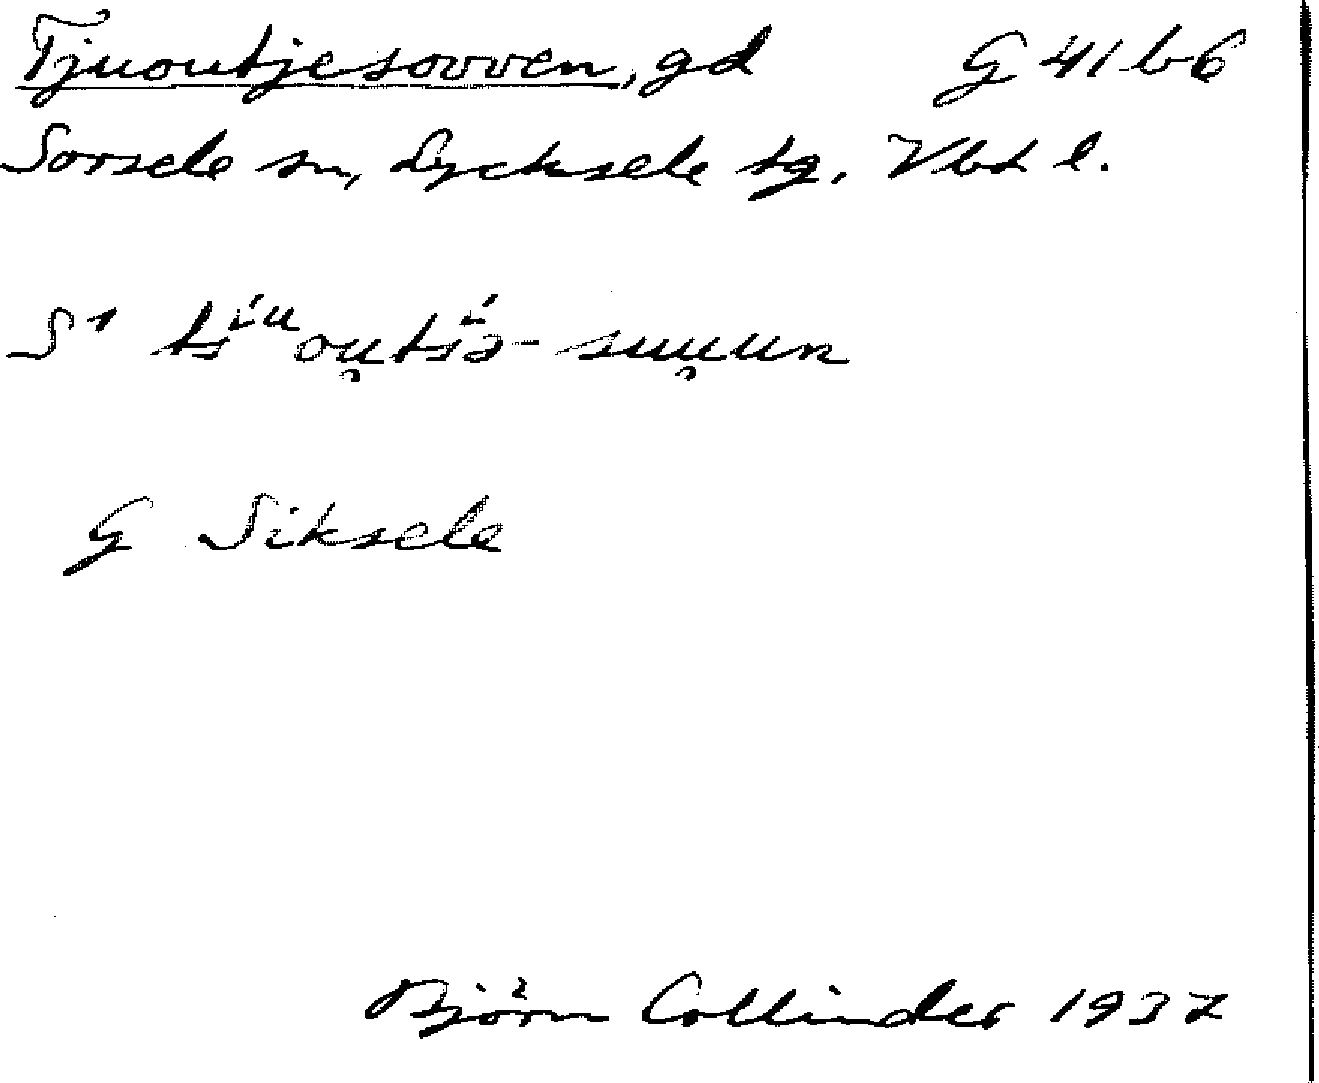 Tjuoutjesovven, gd G 41 b 6
Sorsele sn, Lycksele tg. Vbd l.
S1
G Siksele
Björn Collinder 1937